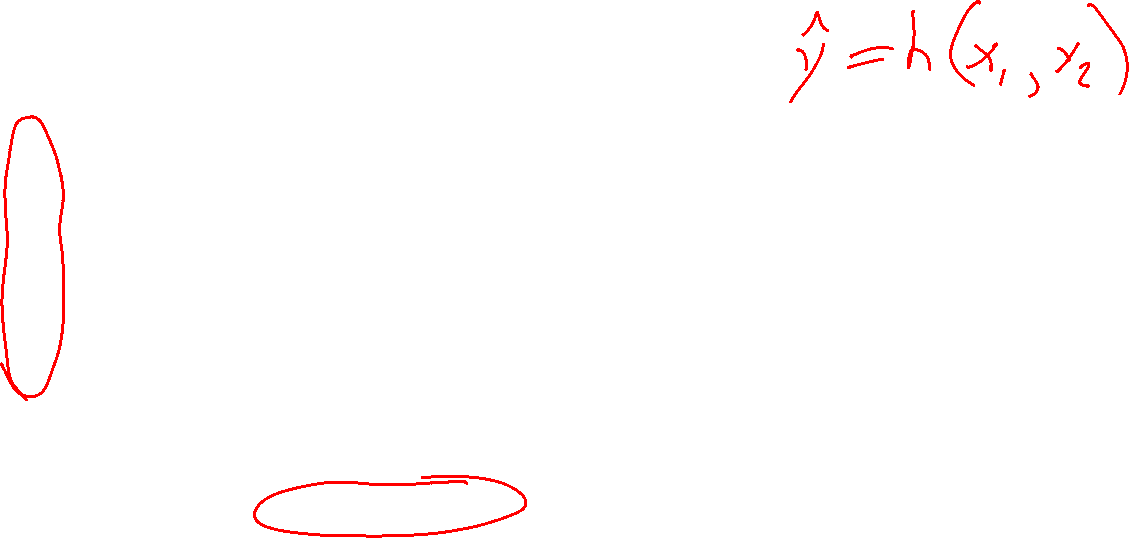 ŷ = h(x₁, x₂)